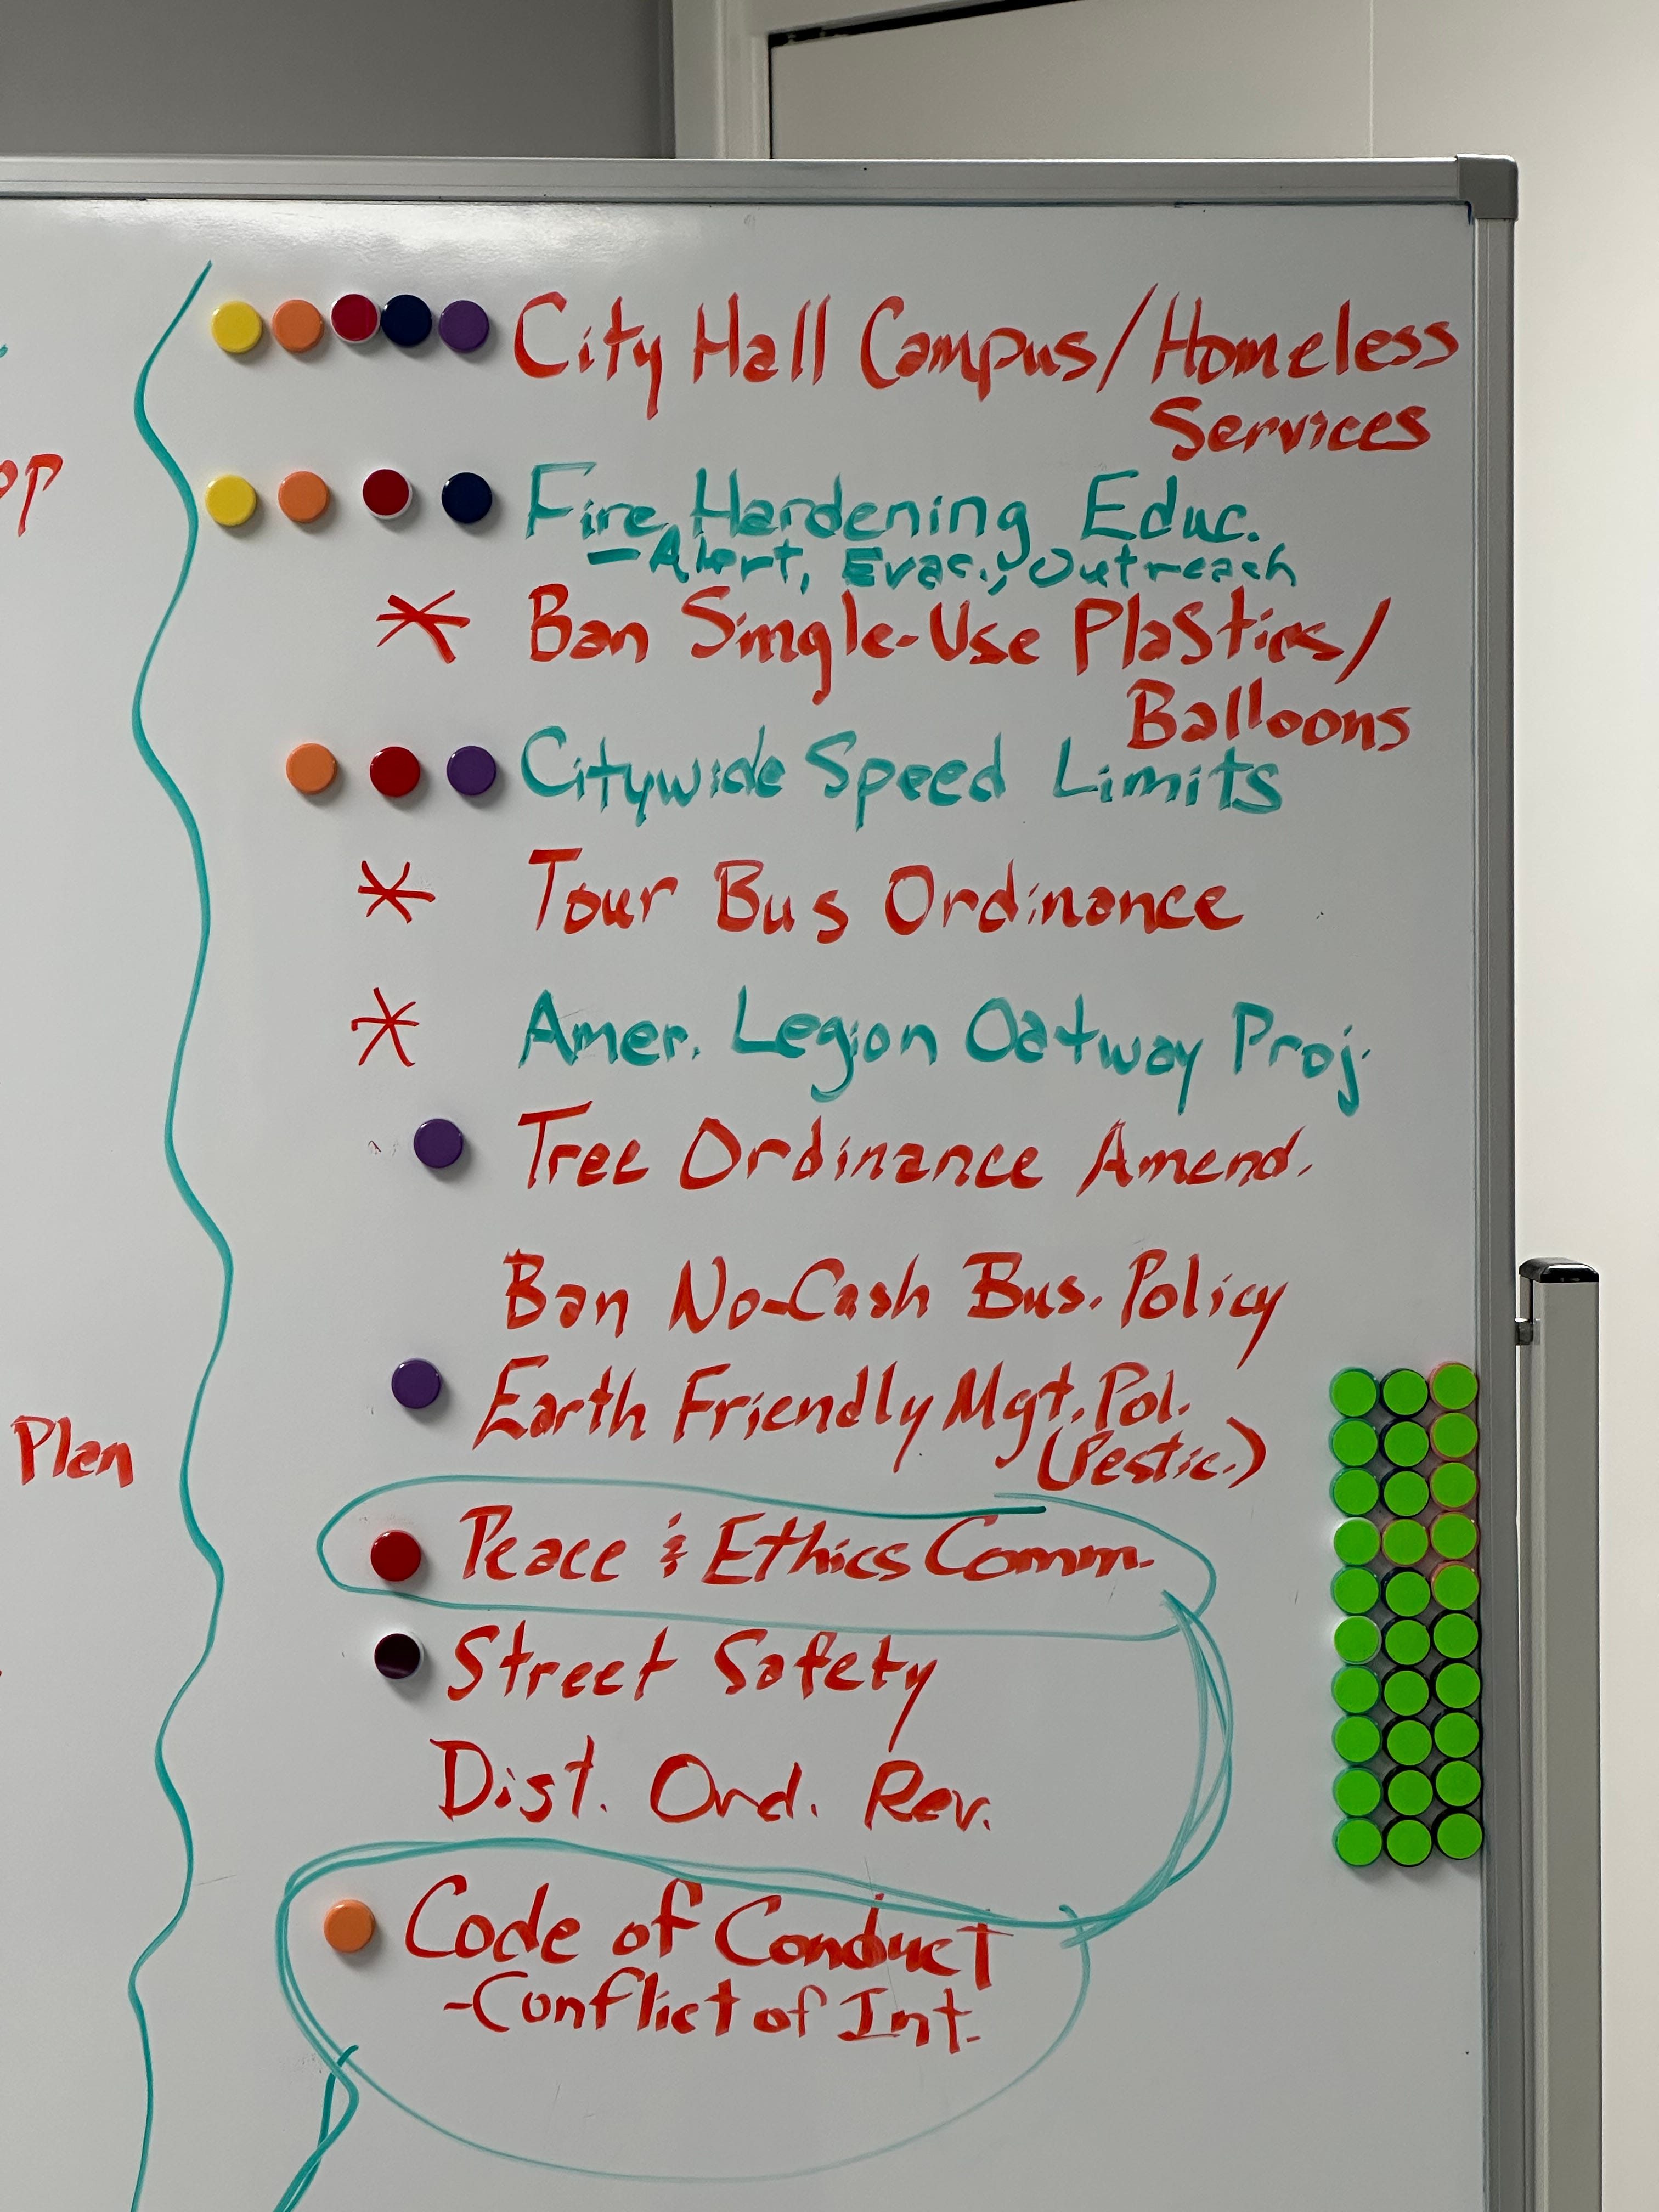 City Hall Campus/Homeless
Services
Fire Hardening Educ.
-Alert, Evac., Outreach
op
Ban Single-Use Plastics/
Balloons
Citywide Speed Limits
Tour Bus Ordinance
Amer. Legion Oatway Proj.
Tree Ordinance Amend.
Ban No-Cash Bus. Policy
Earth Friendly Mgt. Pol.
(Pestic.)
Plan
Peace & Ethics Comm.
Street Safety
Dist. Ord. Rev.
Code of Conduct
-Conflict of Int.